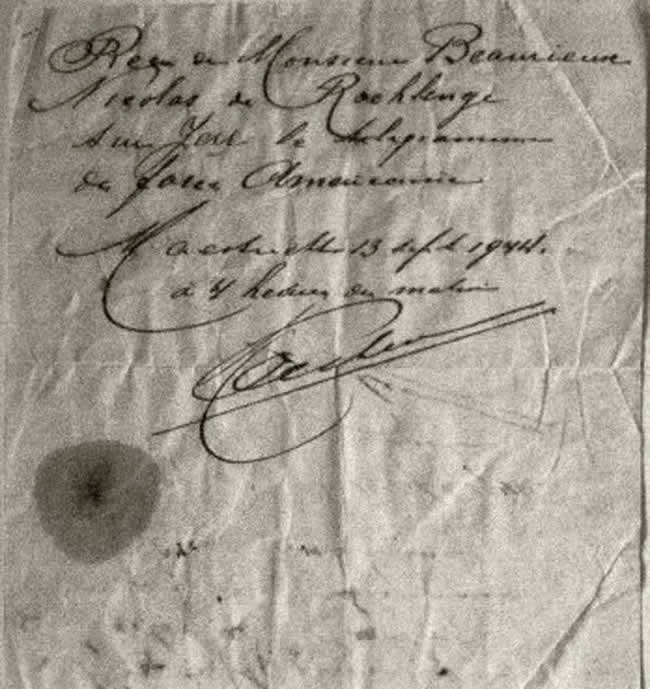 Reçu de Monsieur Beaurieux
Nicolas de Rochlenge
sur Jeer le telegramme
des forces Americaine
Maestricht 13 sept 1944.
à 4 heures du matin